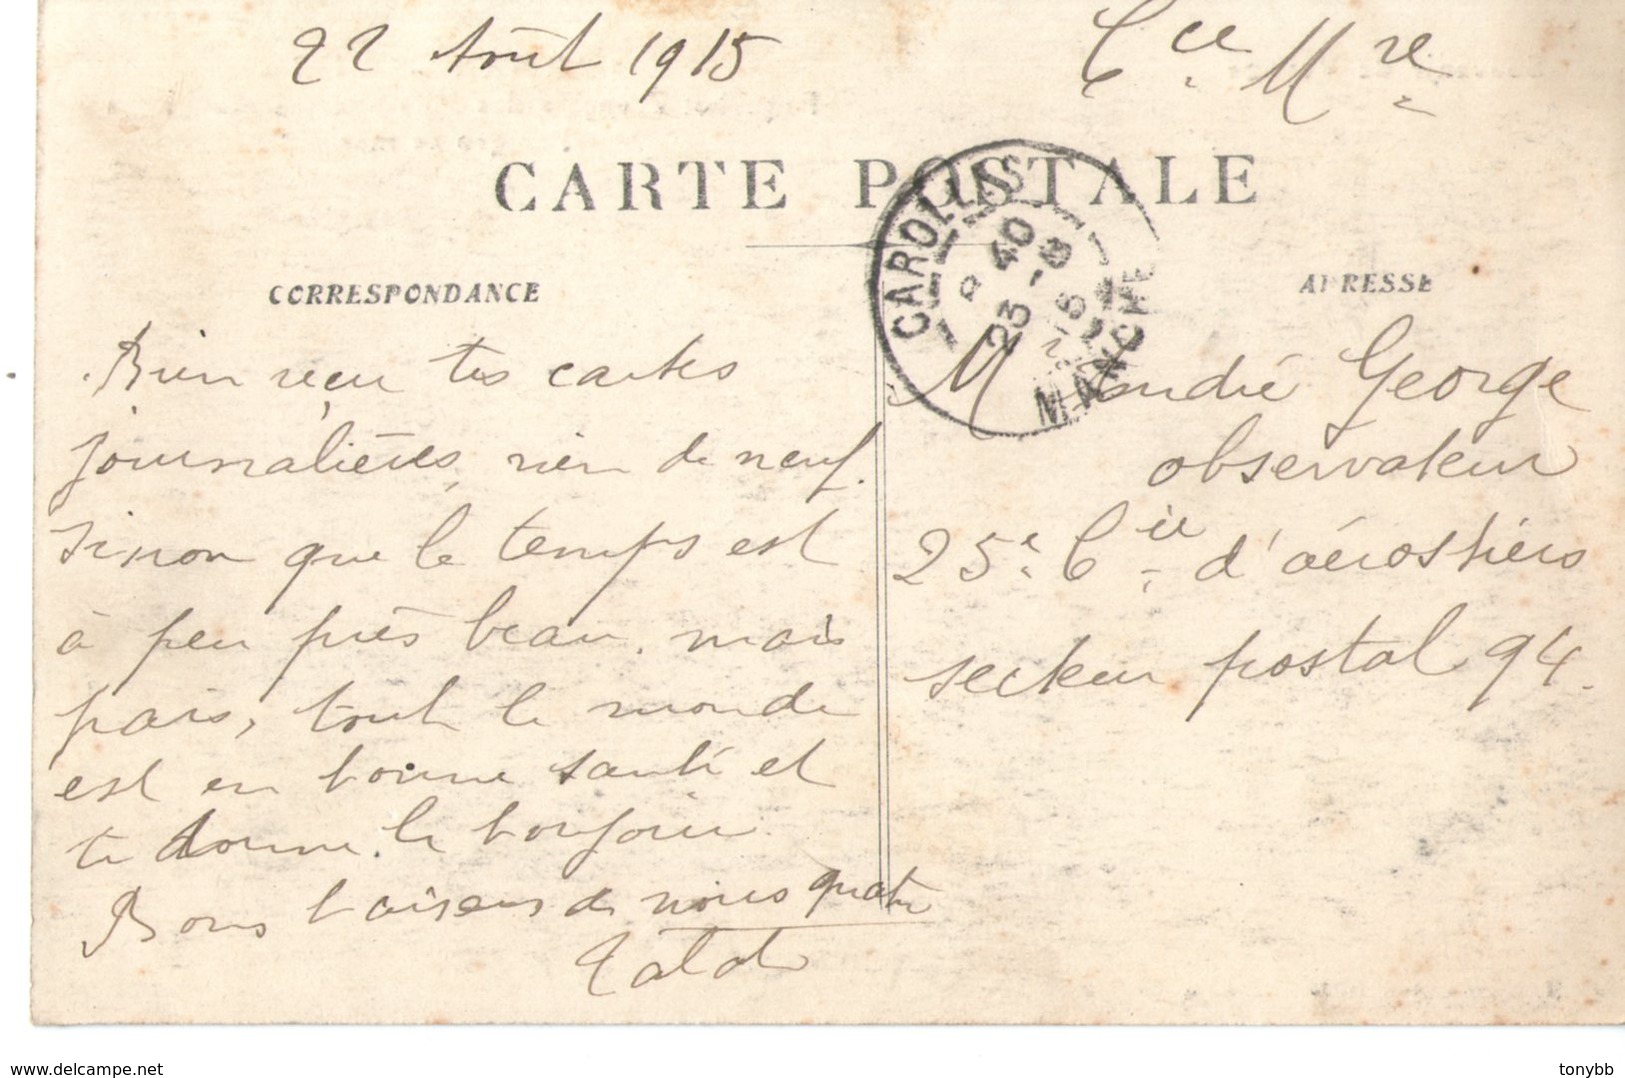 22 Août 1915
Cce Mre
CARTE POSTALE
CAROLLES
MANCHE
CORRESPONDANCE
ADRESSE
Bien reçu tes cartes
journalières, rien de neuf.
sinon que le temps est
à peu près beau. mais
pars, tout le monde
est en bonne santé et
te donne le bonjour.
Bons baisers de nous quatre
M André George
observateur
25e Cie d'aérostiers
secteur postal 94.
www.delcampe.net
tonybb